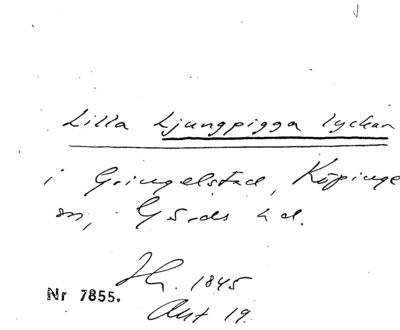 Lilla Ljungpigga lyckan
i Gringelstad, Köpinge
sn, Gärds hd.
Hg. 1845
Nr 7855.
Akt 19.